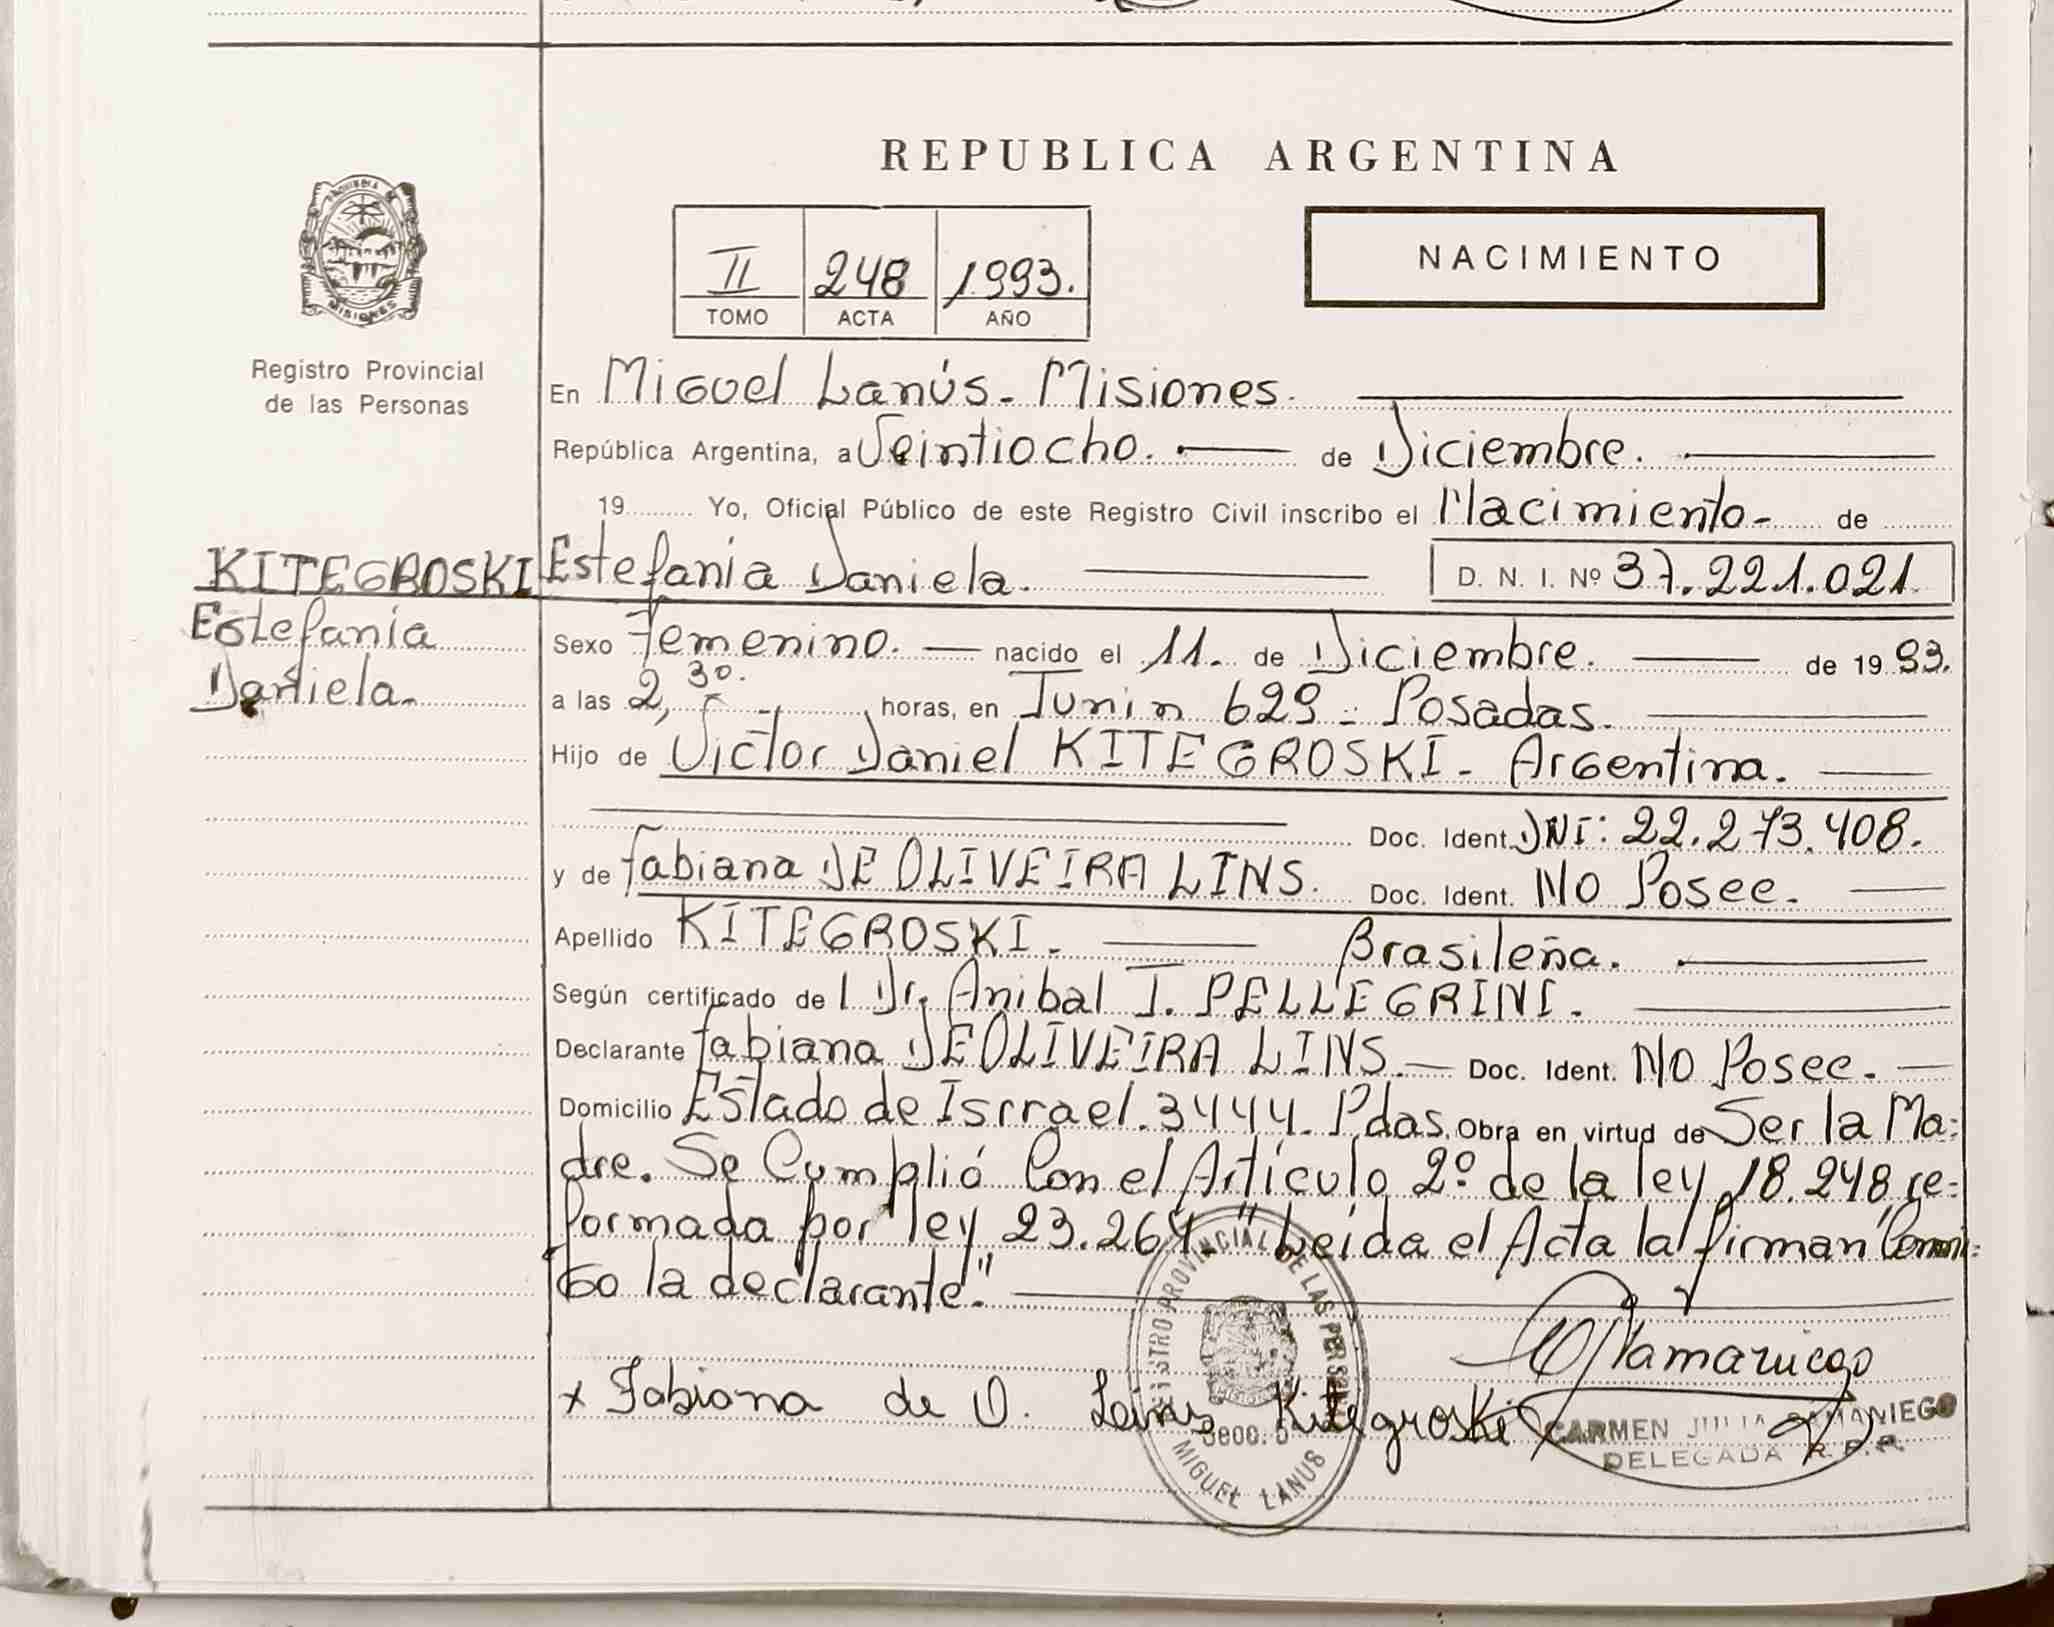 REPUBLICA ARGENTINA
II 248 1993.
TOMO ACTA AÑO
NACIMIENTO
PROVINCIA DE MISIONES
Registro Provincial
de las Personas
KITEGROSKI
Estefanía
Daniela.
En Miguel Lanús - Misiones.
República Argentina, a Veintiocho. de Diciembre.
19 Yo, Oficial Público de este Registro Civil inscribo el Nacimiento - de
Estefanía Daniela. D. N. I. Nº 37.221.021
Sexo Femenino. nacido el 11. de Diciembre. de 1993.
a las 2,30. horas, en Junin 629 - Posadas.
Hijo de Victor Daniel KITEGROSKI - Argentina.
Doc. Ident. DNI: 22.273.408.
y de Fabiana DE OLIVEIRA LINS. Doc. Ident. No Posee.
Apellido KITEGROSKI. Brasileña.
Según certificado del Dr. Anibal J. PELLEGRINI.
Declarante Fabiana DE OLIVEIRA LINS. Doc. Ident. No Posee.
Domicilio Estado de Isrrael. 3444. Pdas. Obra en virtud de Ser la Ma=
dre. Se Cumplió Con el Artículo 2º de la ley 18.248, re=
formada por ley 23.264. "Leida el Acta la firman Conmi=
go la declarante".
x Fabiana de O. Lins Kitegroski
REGISTRO PROVINCIAL DE LAS PERSONAS
Secc. 5
MIGUEL LANUS
CARMEN JULIA SAMANIEGO
DELEGADA R.P.P.